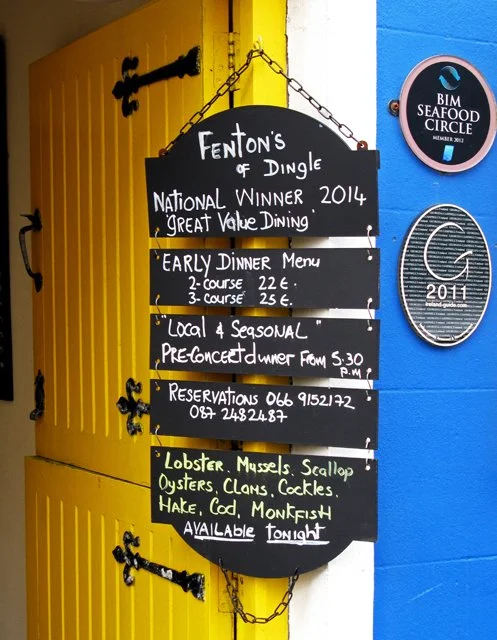 FENTON'S
OF DINGLE
NATIONAL WINNER 2014
'GREAT Value Dining'
EARLY DINNER Menu
2-course 22 €.
3-course 25 €.
"Local & Seasonal"
PRE-Concert dinner From 5.30
P.M
RESERVATIONS 066 9152172
087 2482487
Lobster. Mussels. Scallop
Oysters, Clams, Cockles.
Hake, Cod, Monkfish
AVAILABLE tonight
BIM
SEAFOOD
CIRCLE
MEMBER 2012
G
2011
ireland-guide.com